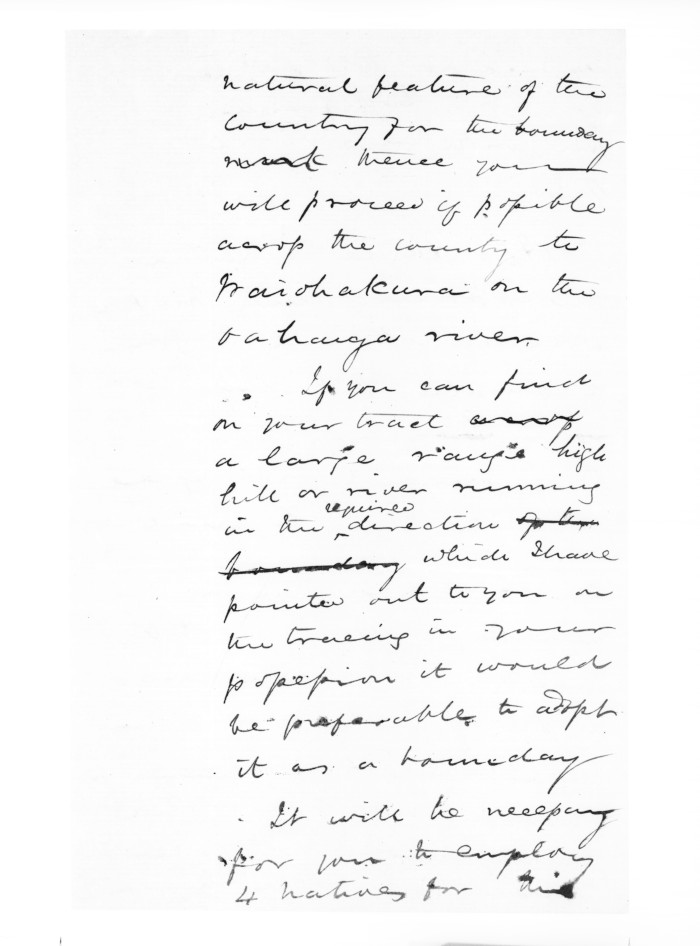 natural feature of the
country for the bounday
mark thence you
will proceed if possible
across the county to
Waiohakura on the
Oahanga river.
If you can find
on your tract across
a large range high
hill or river running
in the required direction of the
bounday which I have
pointed out to you on
the tracing in your
possession it would
be preferable to adopt
it as a bounday
It will be necessary
for you to employ
4 natives for this